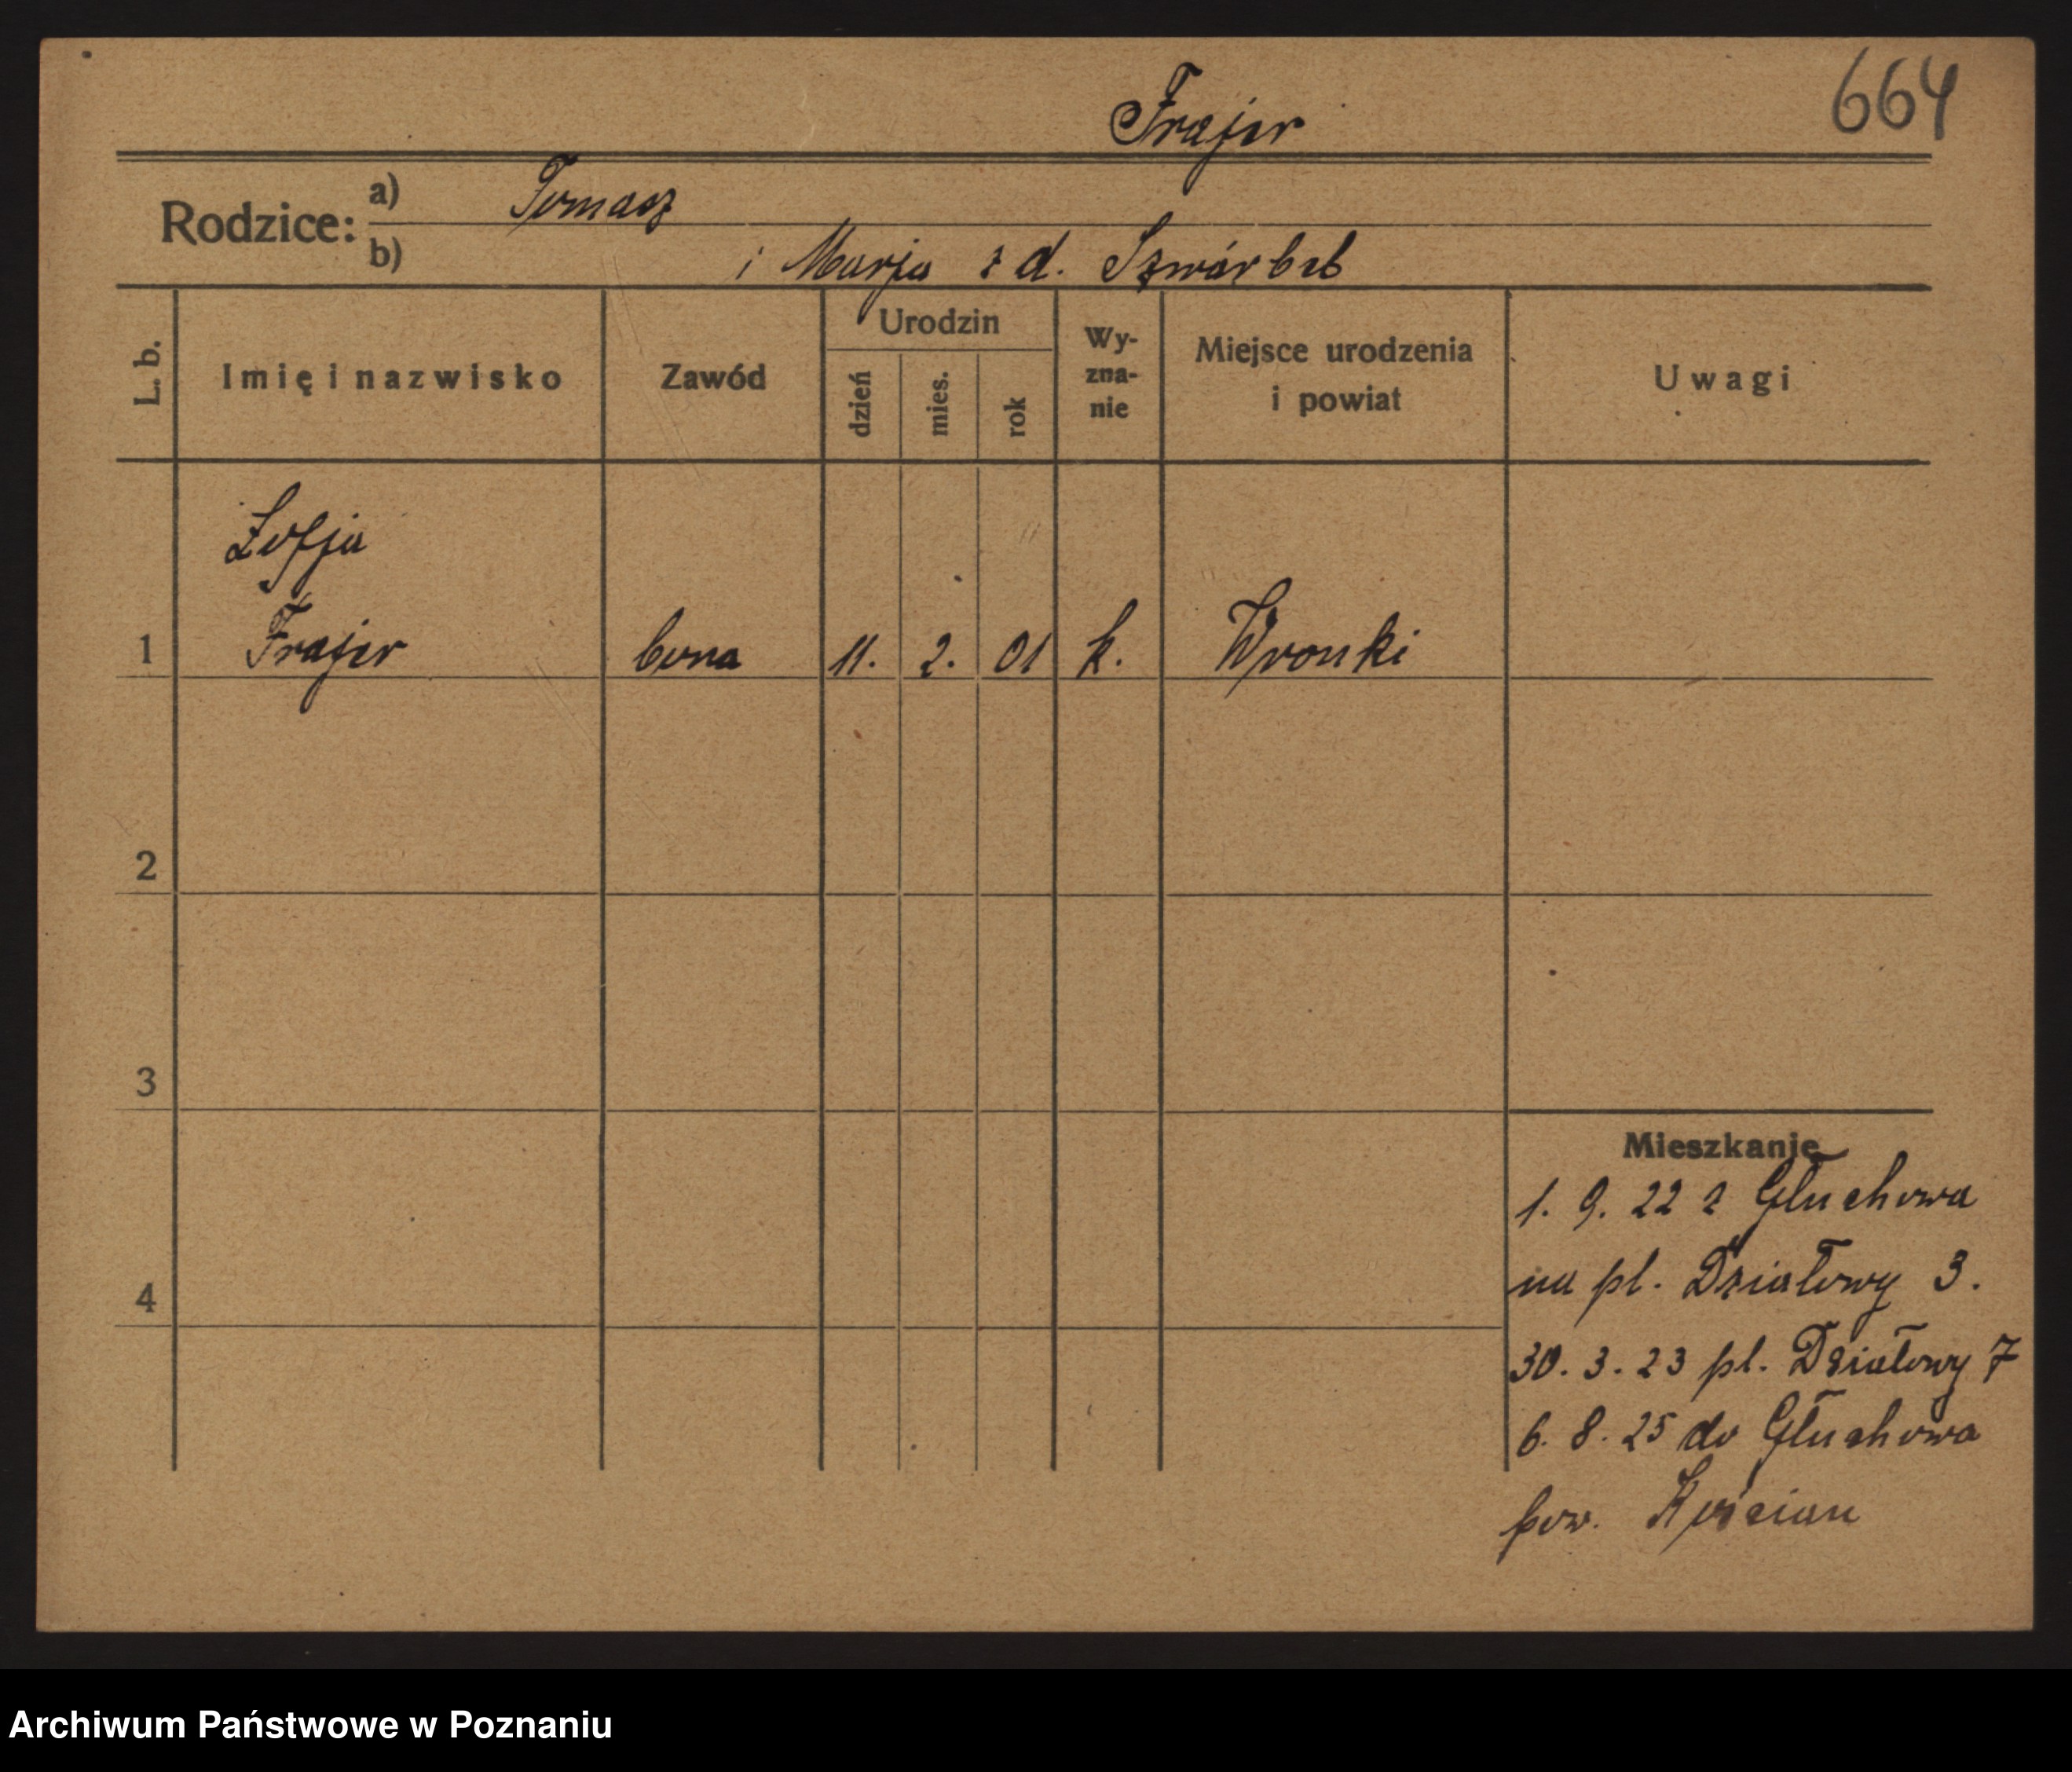 664
Frajer
Rodzice: a) Tomasz
b) i Marja z d.
L. b.
Imię i nazwisko
Zawód
Urodzin
dzień
mies.
rok
Wy-
zna-
nie
Miejsce urodzenia
i powiat
Uwagi
Zofja
1 Frajer bona 11. 2. 01 k. Wronki
2
3
Mieszkanie
1. 9. 22 z Głuchowa
na pl. Działowy 3.
4
30. 3. 23 pl. Działowy 7
6. 8. 25 do Głuchowa
pow. Kościan
Archiwum Państwowe w Poznaniu